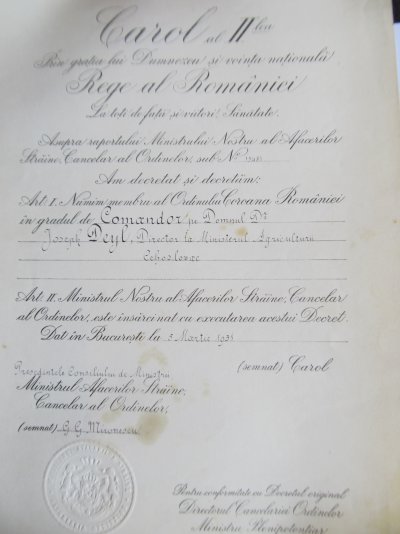 Carol al II lea
Prin grația lui Dumnezeu și voința națională
Rege al României
La toți de față și viitori, Sănătate.
Asupra raportului Ministrului Nostru al Afacerilor
Străine, Cancelar al Ordinelor, sub No
Am decretat și decretăm:
Art. I. Numim membru al Ordinului Coroana României
în gradul de Comandor pe Domnul Dr
Joseph Deyl, Director la Ministerul Agriculturii
Cehoslovac
Art. II. Ministrul Nostru al Afacerilor Străine, Cancelar
al Ordinelor, este însărcinat cu executarea acestui Decret.
Dat în București la 3 Martie 1931
(semnat) Carol
Președintele Consiliului de Miniștri
Ministrul Afacerilor Străine,
Cancelar al Ordinelor,
(semnat) G. G. Mironescu
Pentru conformitate cu Decretul original
Directorul Cancelariei Ordinelor
Ministru Plenipotențiar